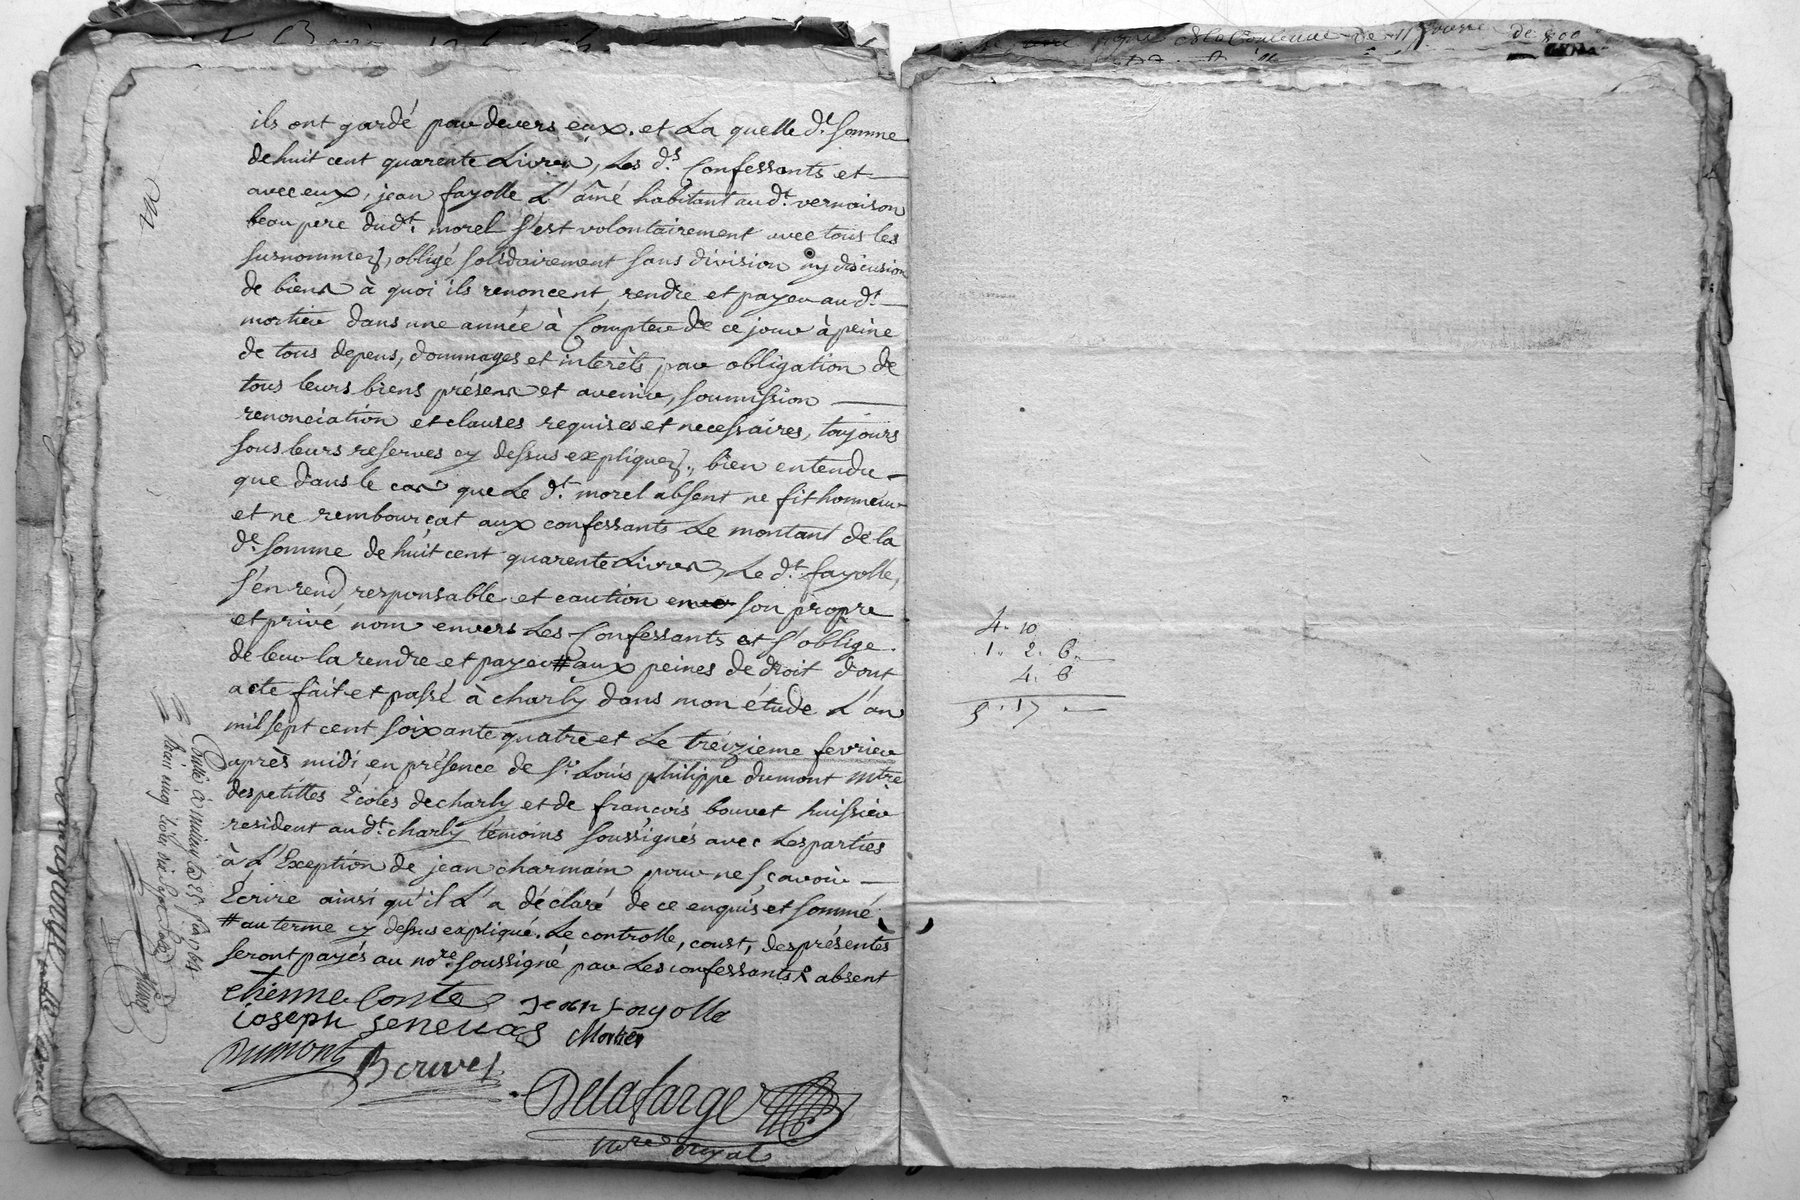 ils ont gardé par devers eux. et La quelle de. Somme
de huit cent quarente Livres, Les ds. Confessants et
avec eux, jean fayolle L'ainé habitant au dt. vernaison
beau pere du dt. morel s'est volontairement avec tous les
surnommez, obligé solidairement sans division ny discusion
de biens à quoi ils renoncent, rendre et payer au dt.
mortier dans une année à Compter de ce jour à peine
de tous depens, dommages et interêts par obligation de
tous leurs biens présens et avenir, soumission
renonciation et clauses requises et necessaires, toujours
sous leurs reserves cy dessus expliquez, bien entendu
que dans le cas que Le dt. morel absent ne fit honneur
et ne rembourçat aux confessants Le montant de la
de. somme de huit cent quarente Livres, Le dt. fayolle,
s'en rend responsable et caution son propre
et privé nom envers Les Confessants et s'oblige
de leur la rendre et payer # aux peines de droit dont
acte fait et passé à charly dans mon étude L'an
mil sept cent soixante quatre et Le treizieme fevrier
après midi en présence de Sr. Louis philippe dumont mtre
des petittes Écoles de charly et de françois bouvet huissier
resident au dt. charly témoins soussignés avec Les parties
à L'Exception de jean charmain pour ne sçavoir
Ecrire ainsi qu'il L'a déclaré de ce enquis et sommé
# au terme cy dessus expliqué. Le controlle, coust, des présentes
seront payés au nore. soussigné par Les confessants & absent
etienne Conte jean fayolle
ioseph genevas Mortier
Dumont Bouvet
Delafarge
nore royal
4. 10
1. 2. 6.
4. 6
5. 17.